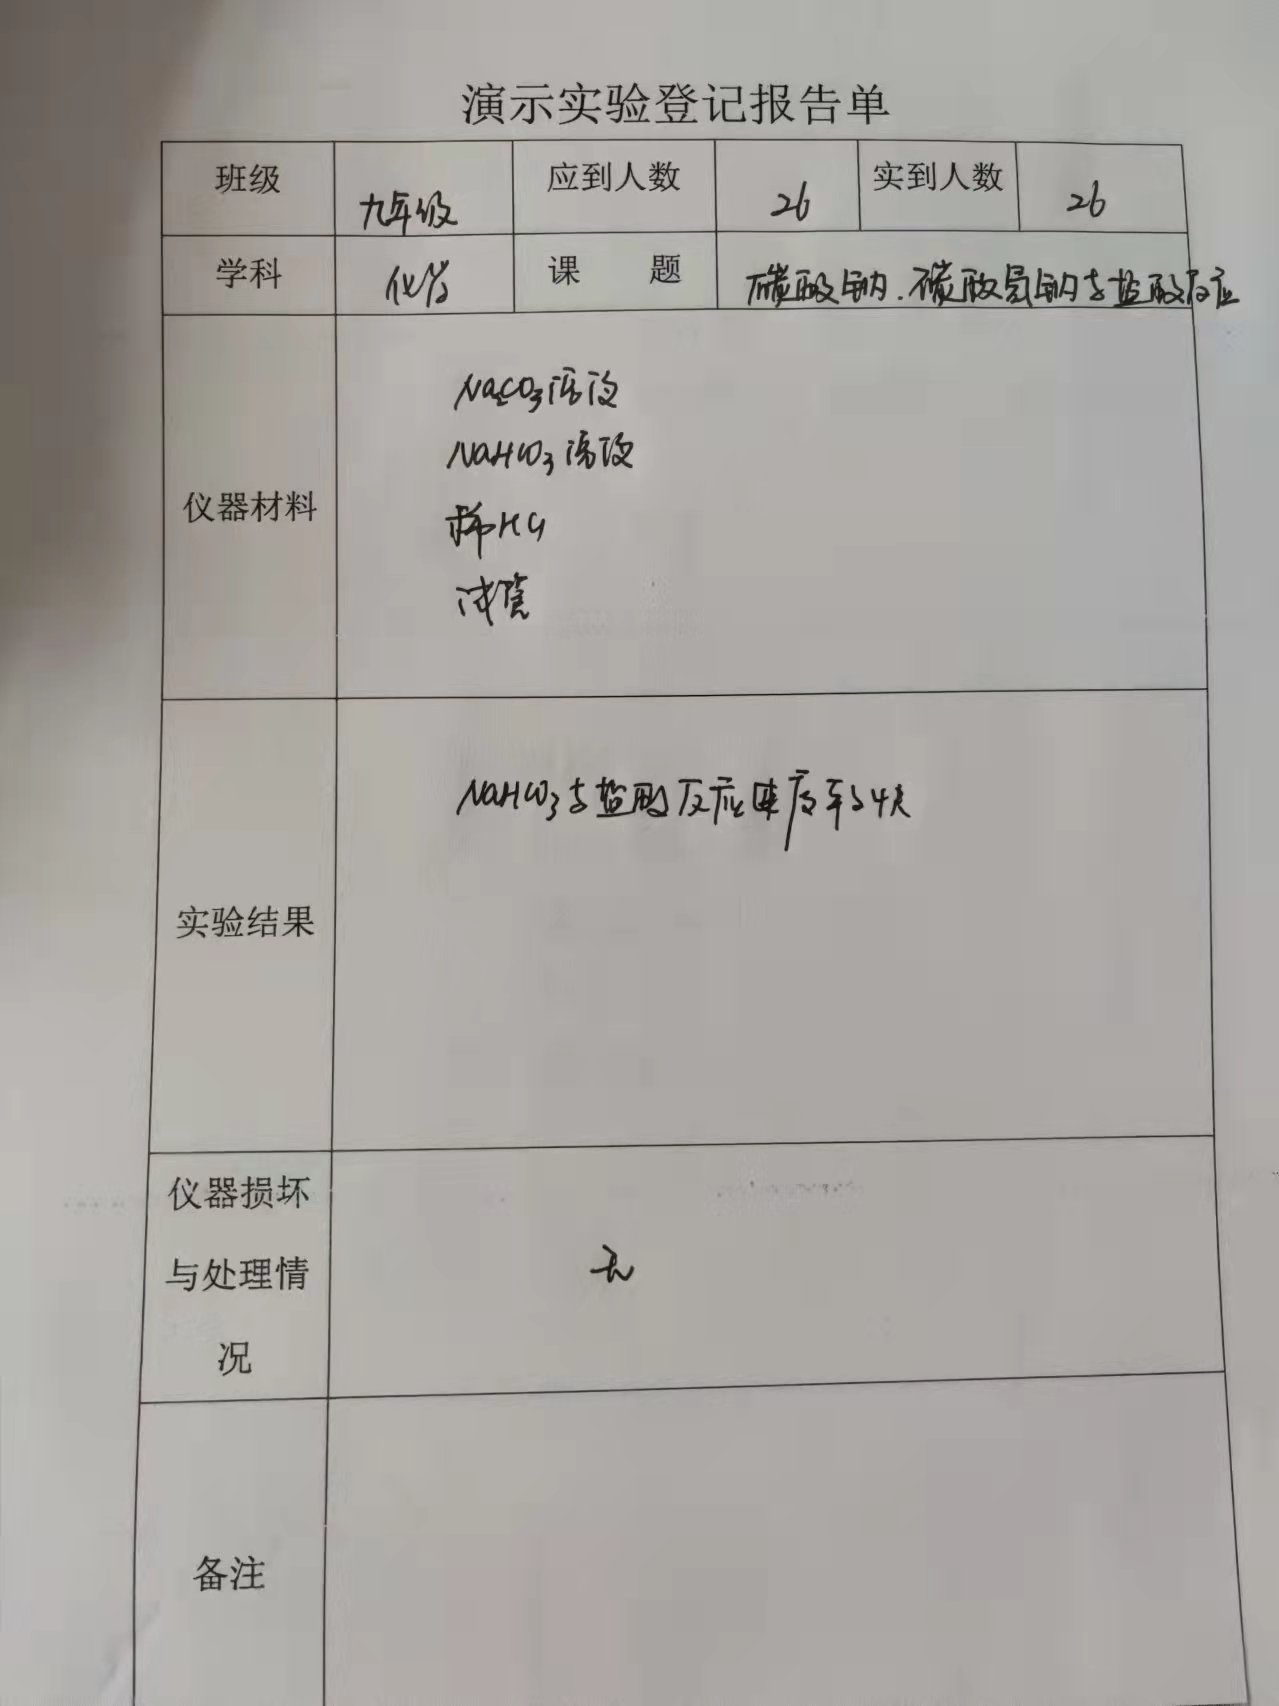 演示实验登记报告单
班级 九年级 应到人数 26 实到人数 26
学科 化学 课 题 碳酸钠、碳酸氢钠与盐酸反应
仪器材料
Na2CO3溶液
NaHCO3溶液
稀HCl
试管
实验结果
NaHCO3与盐酸反应速度较快
仪器损坏
与处理情
况
无
备注